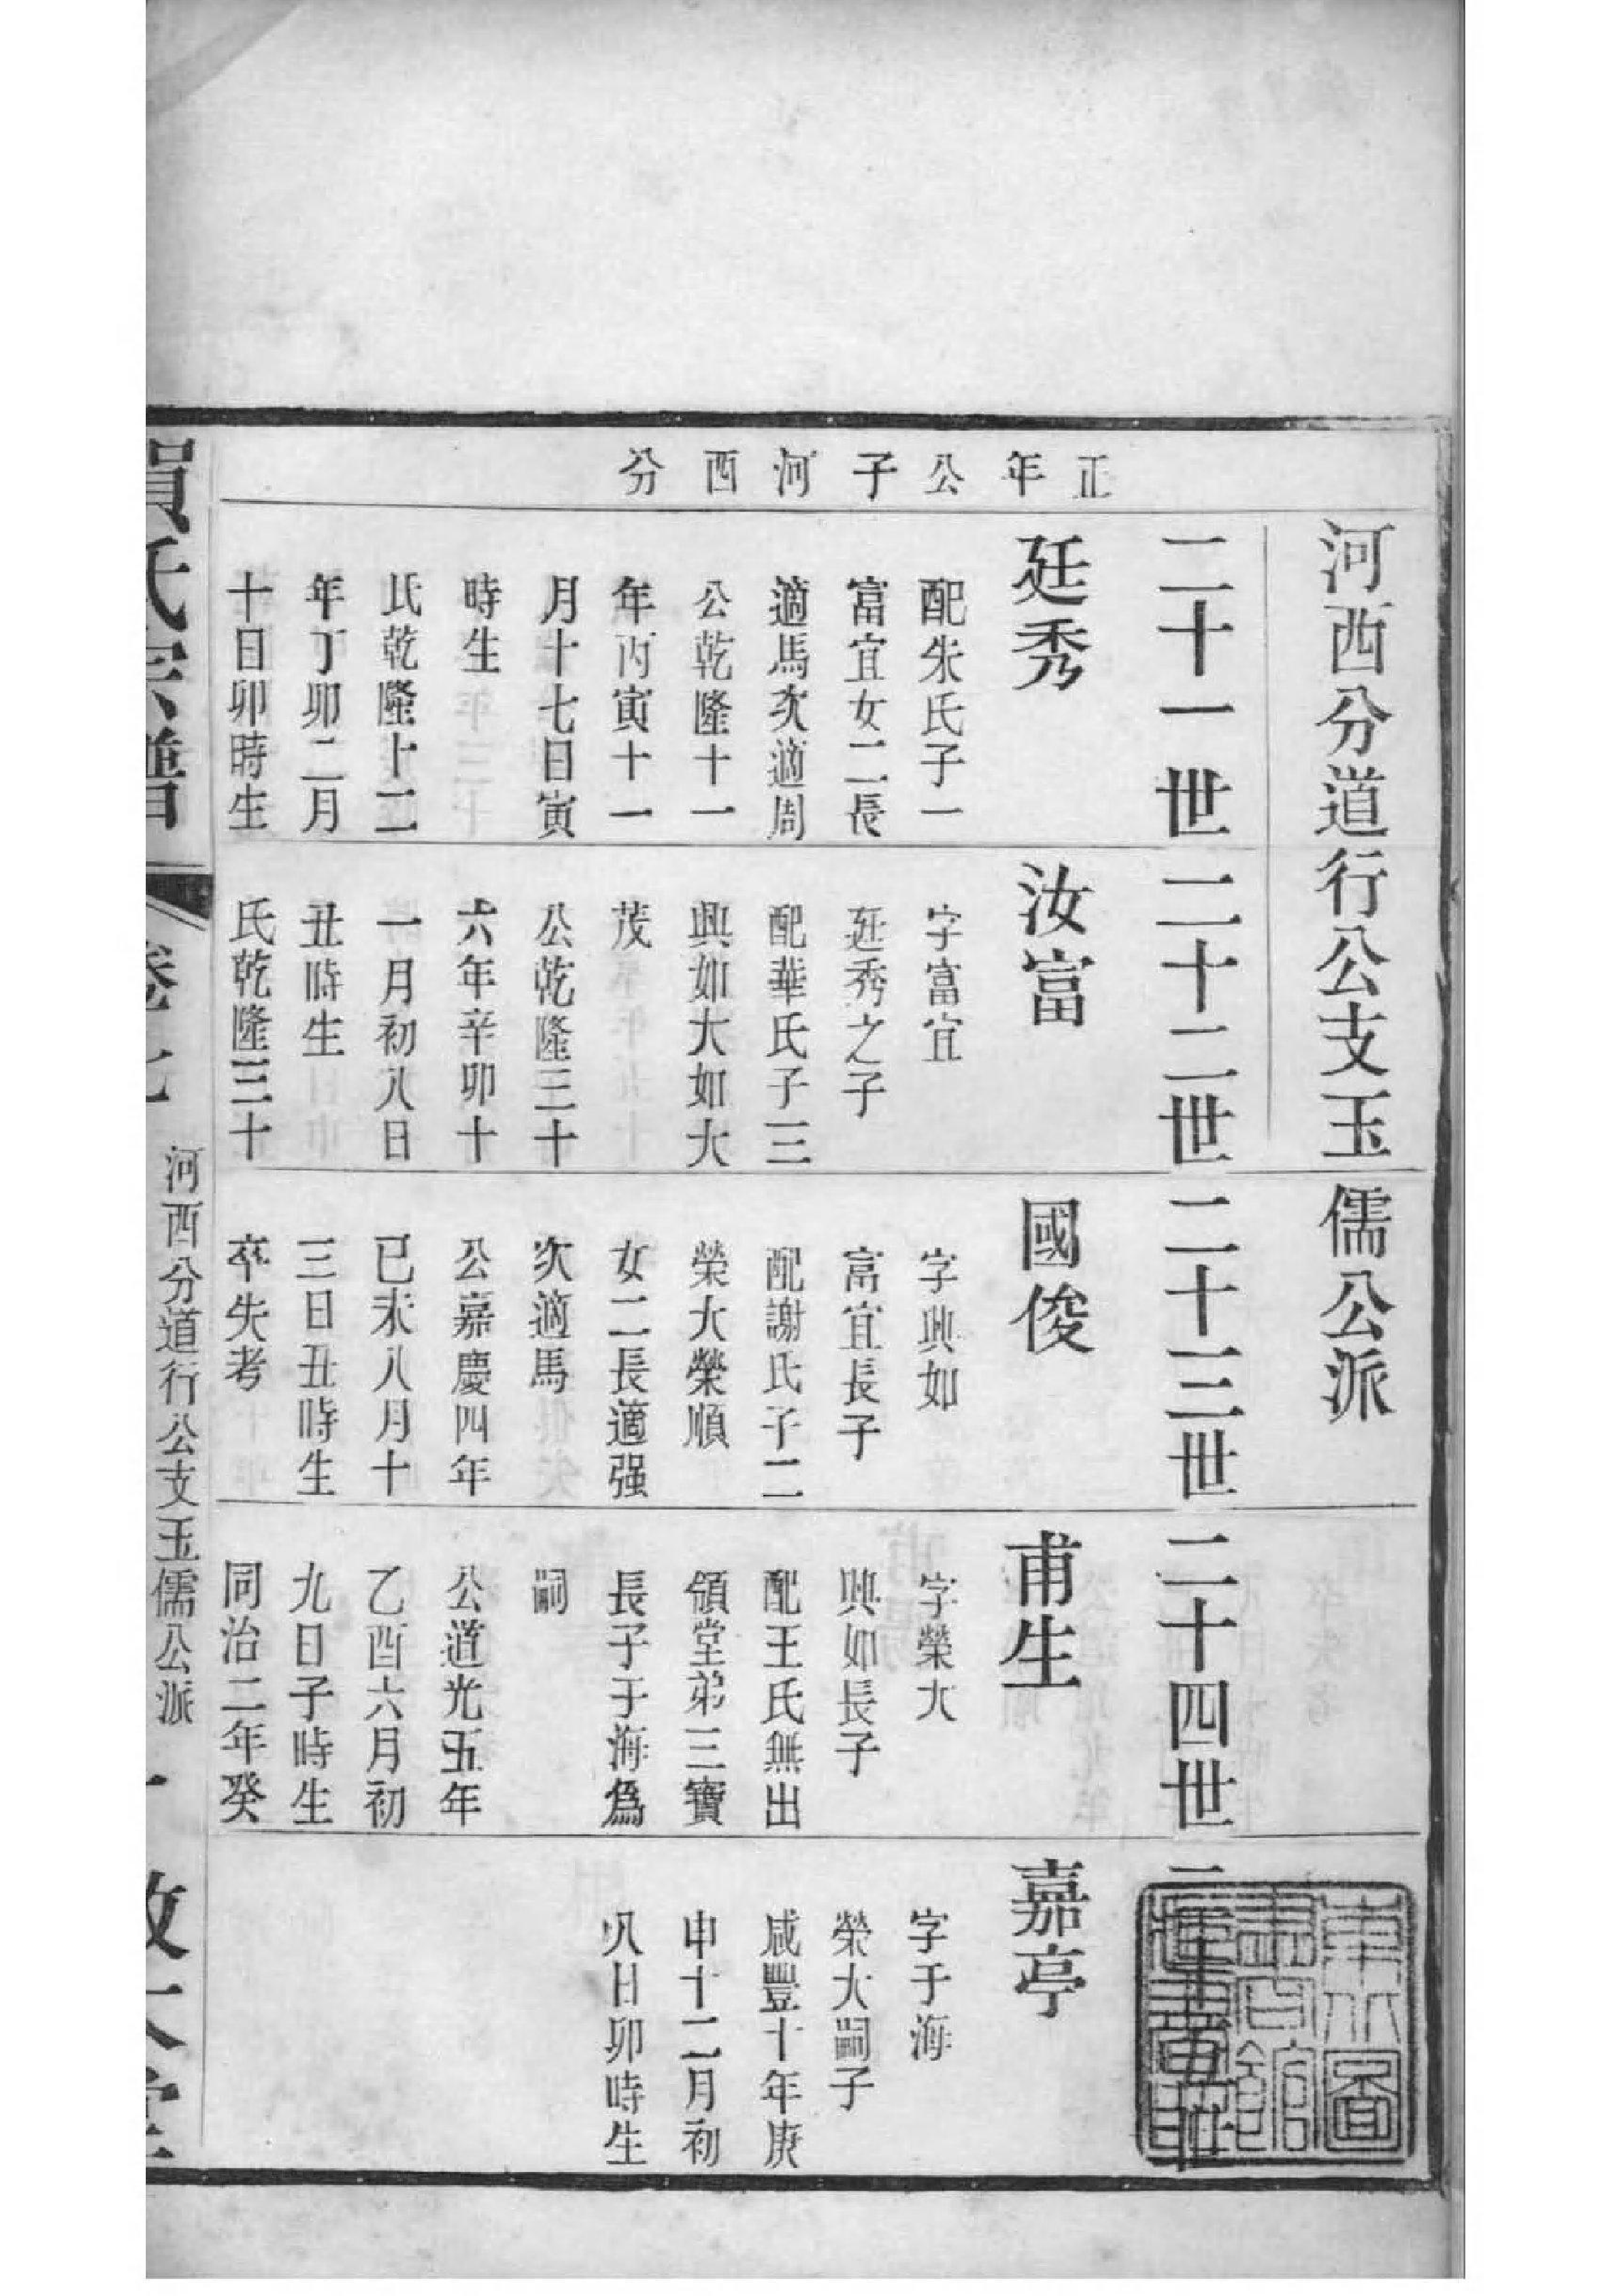 河西分道行公支玉儒公派
正年公子河西分
二十一世
廷秀
配朱氏子一
富宜女二長
適馬次適周
公乾隆十一
年丙寅十一
月十七日寅
時生
氏乾隆十二
年丁卯二月
十日卯時生
二十二世
汝富
字富宜
廷秀之子
配華氏子三
興如大如大
茂
公乾隆三十
六年辛卯十
一月初八日
丑時生
氏乾隆三十
二十三世
國俊
字興如
富宜長子
配謝氏子二
榮大榮順
女二長適强
次適馬
公嘉慶四年
己未八月十
三日丑時生
卒失考
二十四世
甫生
字榮大
興如長子
配王氏無出
領堂弟三寶
長子于海爲
嗣
公道光五年
乙酉六月初
九日子時生
同治二年癸
嘉亭
字于海
榮大嗣子
咸豐十年庚
申十二月初
八日卯時生
氏宗譜
卷七
河西分道行公支玉儒公派
一